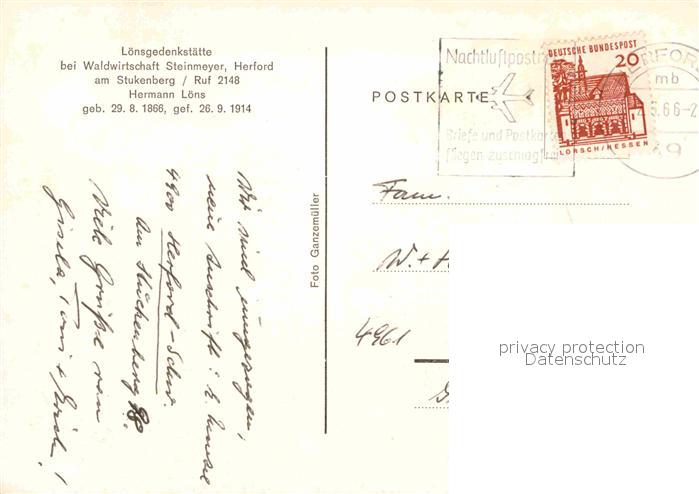 Lönsgedenkstätte
bei Waldwirtschaft Steinmeyer, Herford
am Stukenberg / Ruf 2148
Hermann Löns
geb. 29. 8. 1866, gef. 26. 9. 1914
Wir sind umgezogen,
neue Anschrift:
4900 Herford-Schw.
Am Stuckenberg
Viele Grüße von
Gisela, + Erich!
Foto Ganzemüller
POSTKARTE
Nachluftpostn
Briefe und Postkarte
fliegen zuschlagfrei
DEUTSCHE BUNDESPOST
20
LORSCH/HESSEN
HERFOR
mb
5.66-2
Fam.
W. +
4961
privacy protection
Datenschutz